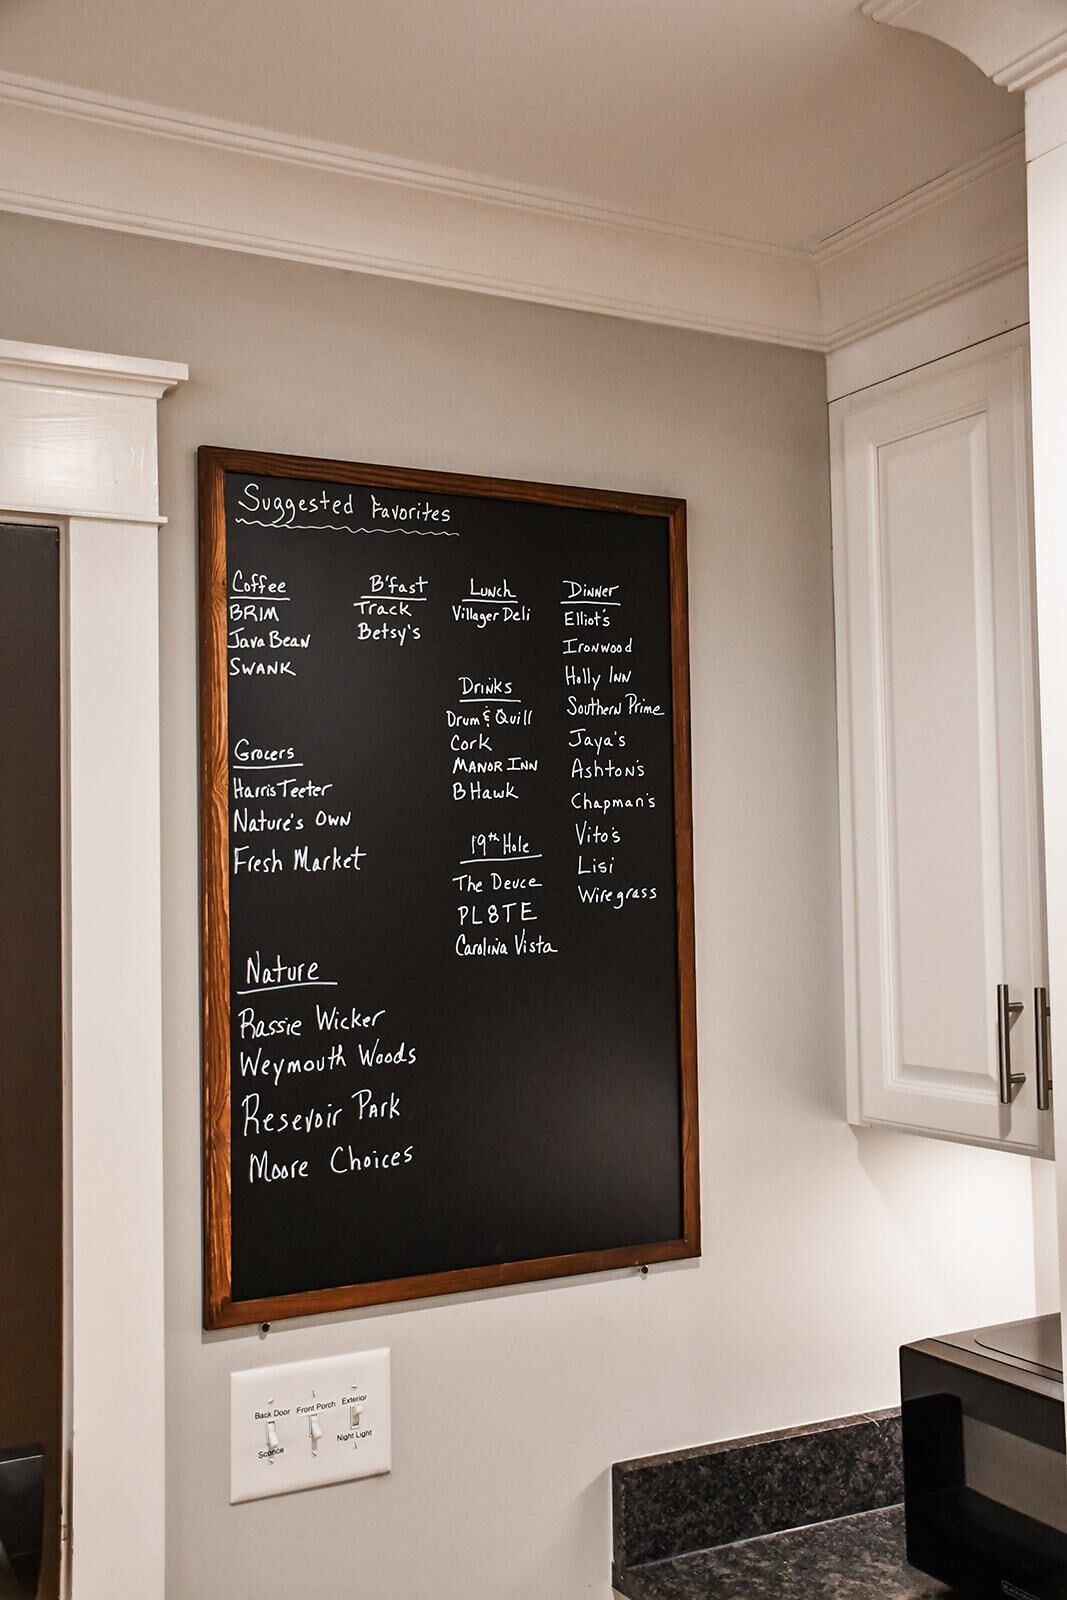 Suggested Favorites
Coffee
BRIM
Java Bean
SWANK
B'fast
Track
Betsy's
Lunch
Villager Deli
Dinner
Elliot's
Ironwood
Holly Inn
Southern Prime
Jaya's
Ashton's
Chapman's
Vito's
Lisi
Wiregrass
Drinks
Drum & Quill
Cork
MANOR INN
B Hawk
19th Hole
The Deuce
PL8TE
Carolina Vista
Grocers
Harris Teeter
Nature's Own
Fresh Market
Nature
Rassie Wicker
Weymouth Woods
Resevoir Park
Moore Choices
Back Door
Sconce
Front Porch
Exterior
Night Light